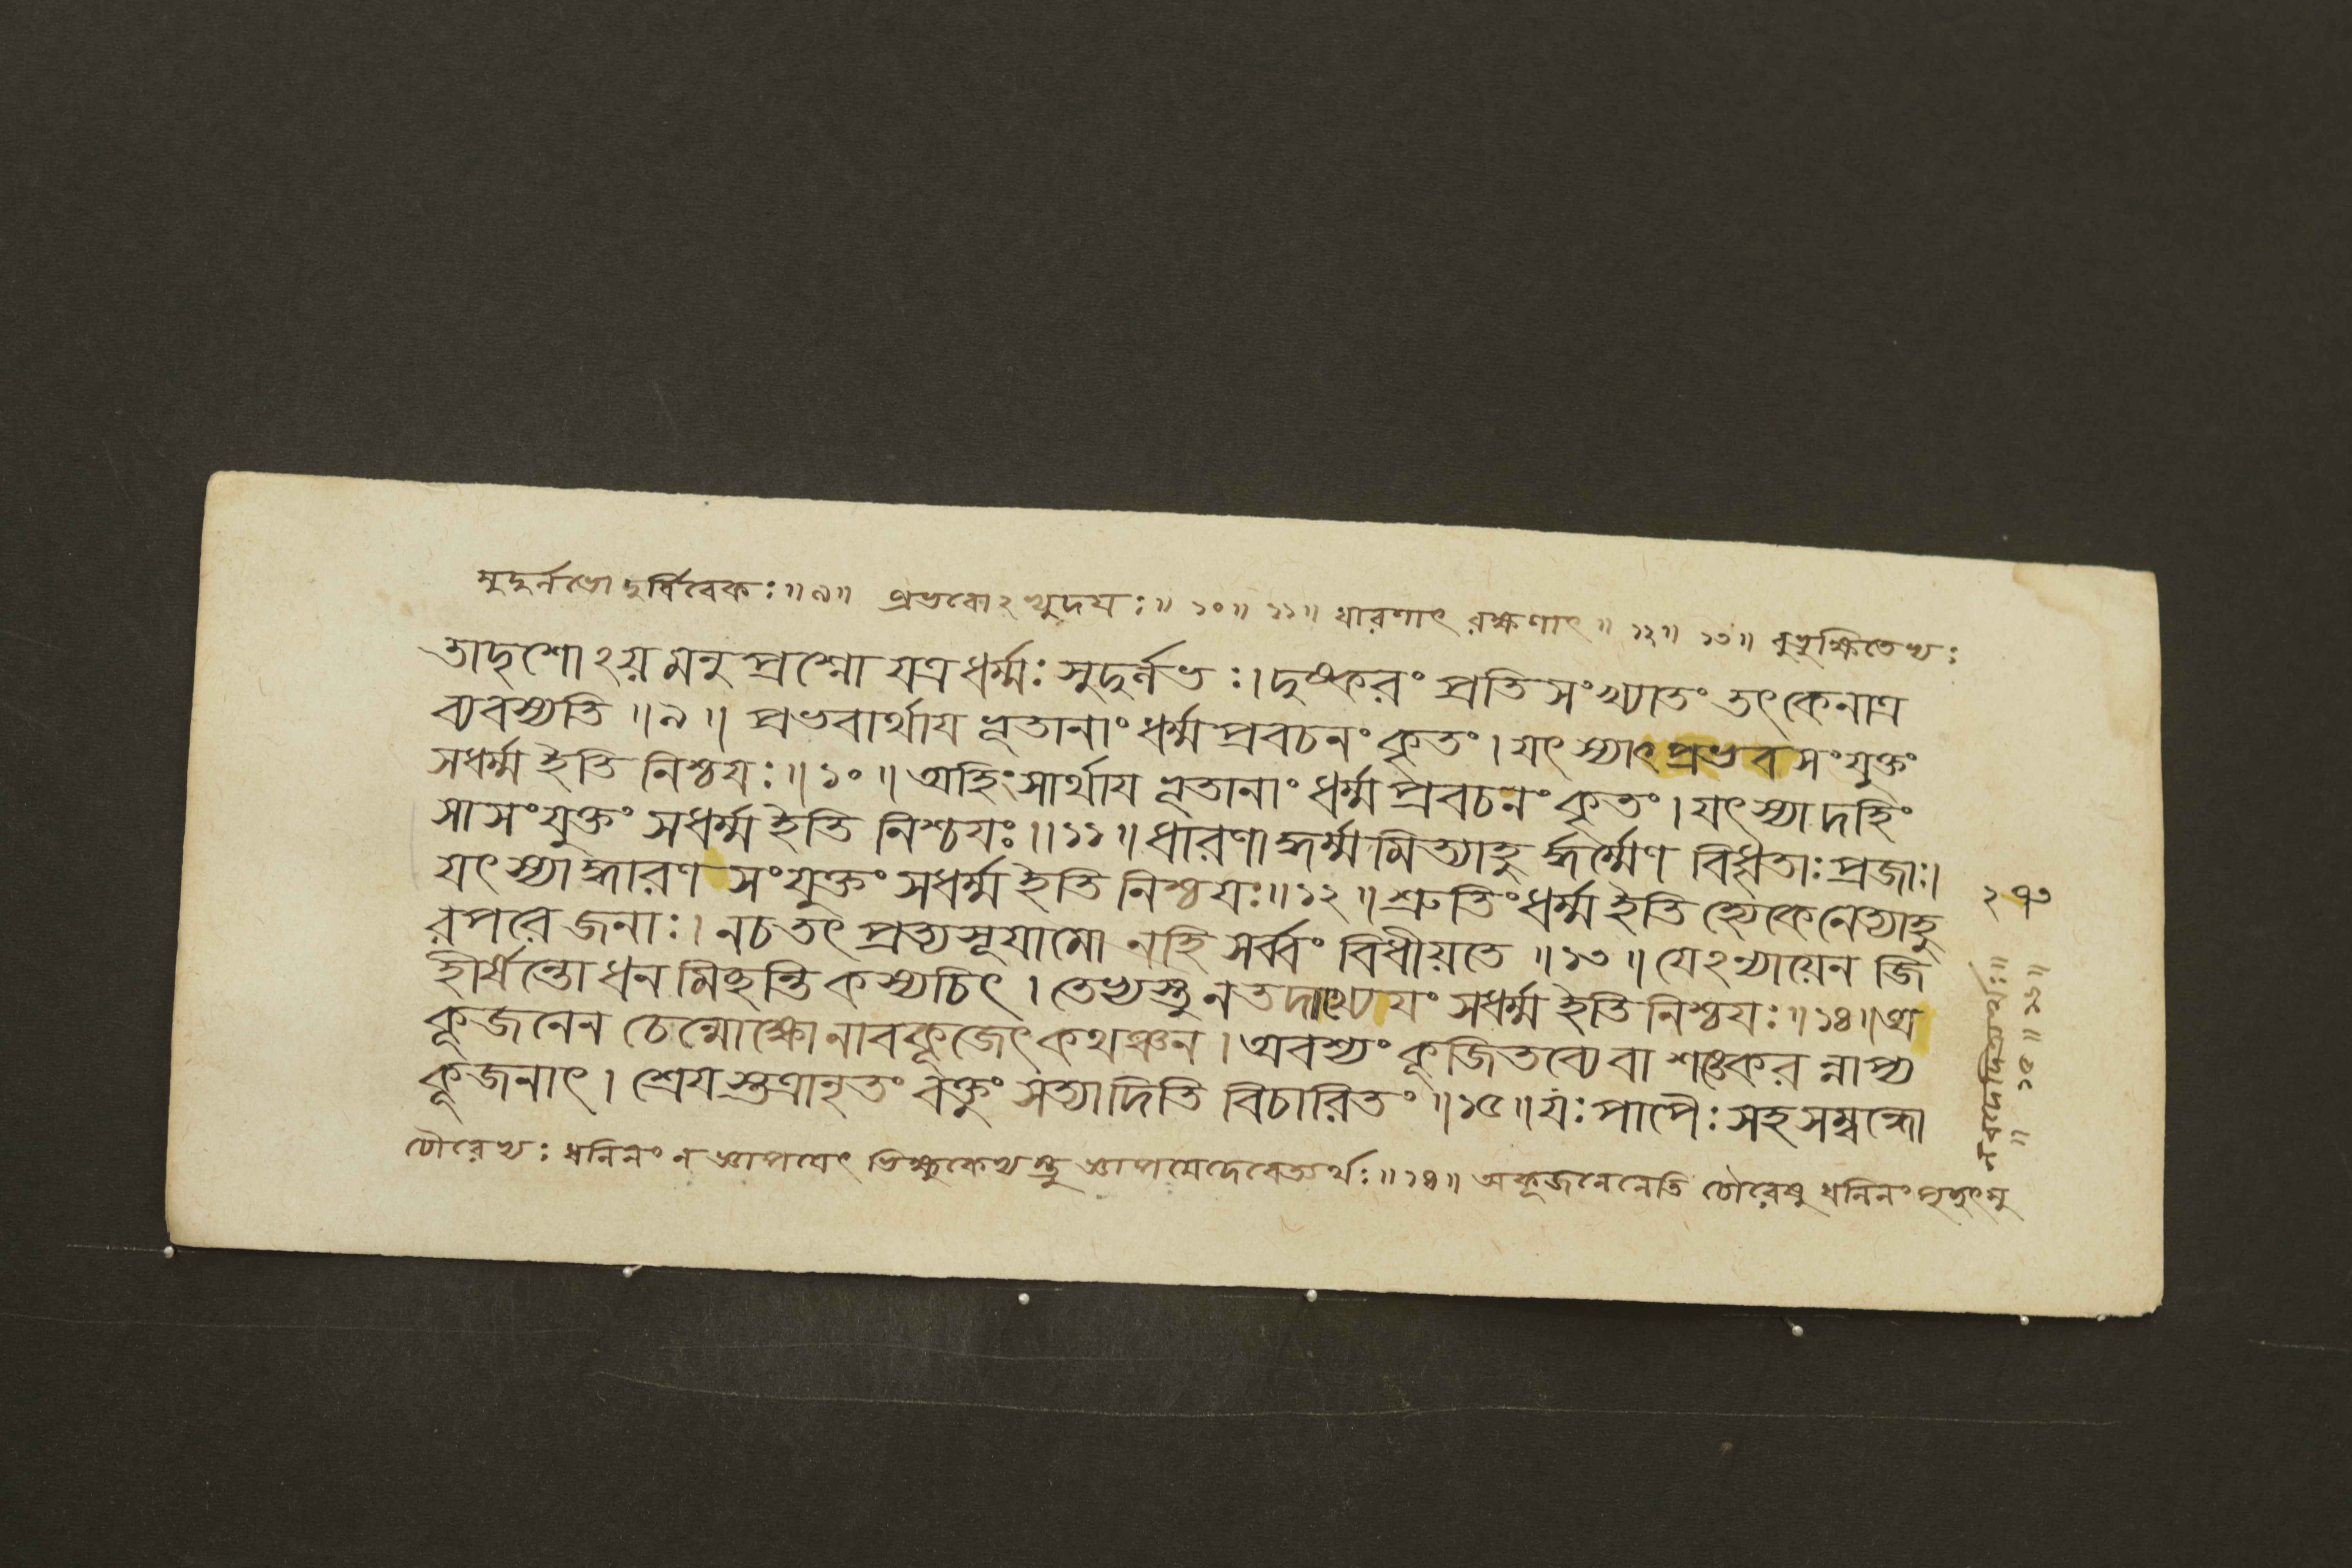 সুদুর্লভো দুর্বিবেকঃ ॥ ৯ ॥ প্রভবোঽভ্যুদয়ঃ ॥ ১০ ॥ ১১ ॥ ধারণাৎ রক্ষণাৎ ॥ ১২ ॥ ১৩ ॥ বুভুক্ষিতেভ্যঃ
তাদৃশোঽয়মনুপ্রশ্নো যত্রধর্ম্মঃ সুদুর্লভঃ । দুষ্করং প্রতিসংখ্যাতং তৎকেনাত্র
ব্যবস্যতি ॥ ৯ ॥ প্রভবার্থায ভূতানাং ধর্ম্মপ্রবচনং কৃতং । যৎস্যাৎপ্রভবসংযুক্তং
সধর্ম্ম ইতি নিশ্চযঃ ॥ ১০ ॥ অহিংসার্থায ভূতানাং ধর্ম্মপ্রবচনং কৃতং । যৎস্যাদহিং
সাসংযুক্তং সধর্ম্ম ইতি নিশ্চযঃ ॥ ১১ ॥ ধারণাদ্ধর্ম্মমিত্যাহু র্দ্ধর্ম্মেণ বিধৃতাঃপ্রজাঃ ।
যৎস্যাদ্ধারণসংযুক্তং সধর্ম্ম ইতি নিশ্চযঃ ॥ ১২ ॥ শ্রুতিংধর্ম্ম ইতি হ্যেকেনেত্যাহু
রপরে জনাঃ । নচতৎ প্রত্যসূযামো নহি সর্ব্বং বিধীয়তে ॥ ১৩ ॥ যেঽন্যায়েন জি
হীর্ষন্তো ধনমিচ্ছন্তি কস্যচিৎ । তেভ্যস্তু নতদাখ্যেযং সধর্ম্ম ইতি নিশ্চযঃ ॥ ১৪ ॥ অ
কূজনেন চেন্মোক্ষো নাবকূজেৎকথঞ্চন । অবশ্যং কূজিতব্যেবা শঙ্কেরন্নাপ্য
কূজনাৎ । শ্রেযস্তত্রানৃতং বক্তুং সত্যাদিতি বিচারিতং ॥ ১৫ ॥ যঃ পাপৈঃ সহসম্বন্ধো
চৌরেভ্যঃ ধনিনং ন জ্ঞাপযেৎ ভিক্ষুকেভ্যস্তু জ্ঞাপয়েদেবেত্যর্থঃ ॥ ১৪ ॥ অকূজনেনেতি চৌরেষু ধনিনং
২৭৩
নবদেদিত্যর্থঃ ॥
॥ ১৫ ॥ ১৬ ॥